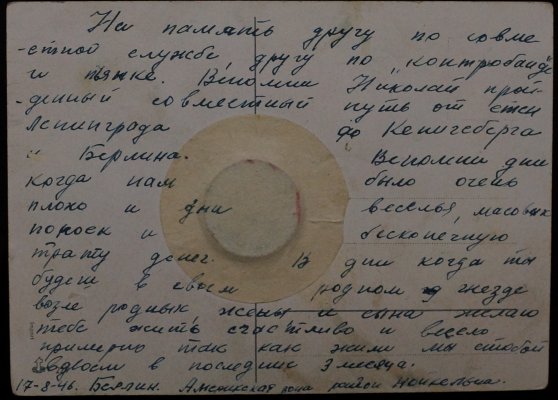 На память другу по совме
-стной службе, другу по „контробанде"
и тяжке. Вспомни Николай прой-
-денный совместный путь от
Ленинграда до Кенигсберга
и Берлина. Вспомни дни
когда нам было очень
плохо и дни веселья, массовых
и бесконечную
трату денег. В дни когда ты
будеш в своем родном гнезде
возле родных, жены и сына желаю
тебе жить счастливо и весело
примерно так как жили мы с тобой
вдвоем в последние 3 месяца.
17-8-46. Берлин. Амер-кская зона район